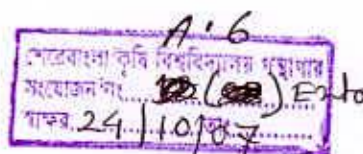 A·6
শেরেবাংলা কৃষি বিশ্ববিদ্যালয় গ্রন্থাগার
সংযোজন নং ( ) Ento
স্বাক্ষর 24/10/07